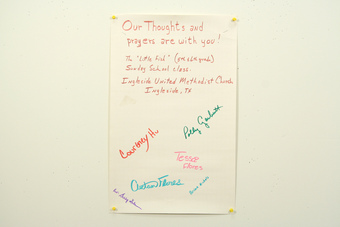 Our Thoughts and
prayers are with you!
The "Little Fish" (5th & 6th grade)
Sunday School class.
Ingleside United Methodist Church
Ingleside, TX
Courtney H.
Polly
Tessa
Flores
Flores